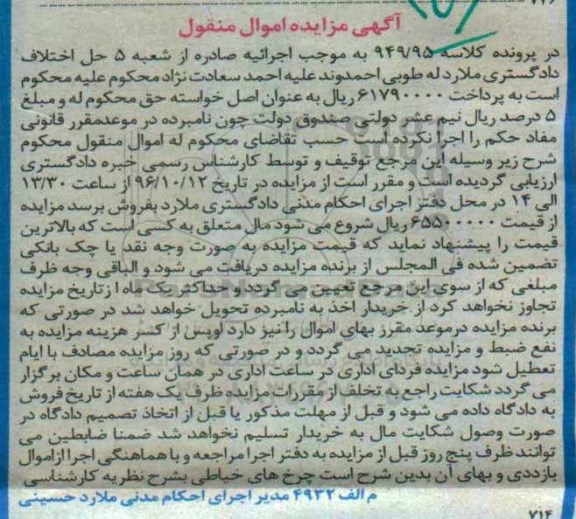 ۷۲۶
آگهی مزایده اموال منقول
در پرونده کلاسه ۹۴۹/۹۵ به موجب اجرائیه صادره از شعبه ۵ حل اختلاف
دادگستری ملارد له طوبی احمدوند علیه احمد سعادت نژاد محکوم علیه محکوم
است به پرداخت ۶۱۷۹۰۰۰۰ ریال به عنوان اصل خواسته حق محکوم له و مبلغ
۵ درصد ریال نیم عشر دولتی صندوق دولت چون نامبرده در موعدمقرر قانونی
مفاد حکم را اجرا نکرده است حسب تقاضای محکوم له اموال منقول محکوم
شرح زیر وسیله این مرجع توقیف و توسط کارشناس رسمی خبره دادگستری
ارزیابی گردیده است و مقرر است از مزایده در تاریخ ۹۶/۱۰/۱۲ از ساعت ۱۳/۳۰
الی ۱۴ در محل دفتر اجرای احکام مدنی دادگستری ملارد بفروش برسد مزایده
از قیمت ۶۵۵۰۰۰۰۰ ریال شروع می شود مال متعلق به کسی است که بالاترین
قیمت را پیشنهاد نماید که قیمت مزایده به صورت وجه نقد یا چک بانکی
تضمین شده فی المجلس از برنده مزایده دریافت می شود و الباقی وجه ظرف
مبلغی که از سوی این مرجع تعیین می گردد و حداکثر یک ماه از تاریخ مزایده
تجاوز نخواهد کرد از خریدار اخذ به نامبرده تحویل خواهد شد در صورتی که
برنده مزایده درموعد مقرر بهای اموال را نپر دارد اوپس از کسر هزینه مزایده به
نفع ضبط و مزایده تجدید می گردد و در صورتی که روز مزایده مصادف با ایام
تعطیل شود مزایده فردای اداری در ساعت اداری در همان ساعت و مکان برگزار
می گردد شکایت راجع به تخلف از مقررات مزایده ظرف یک هفته از تاریخ فروش
به دادگاه داده می شود و قبل از مهلت مذکور یا قبل از اتخاذ تصمیم دادگاه در
صورت وصول شکایت مال به خریدار تسلیم نخواهد شد ضمنا ضابطین می
توانند ظرف پنج روز قبل از مزایده به دفتر اجرا مراجعه و با هماهنگی اجرا ازاموال
بازددی و بهای آن بدین شرح است چرخ های خیاطی بشرح نظریه کارشناسی
م الف ۴۹۳۲ مدیر اجرای احکام مدنی ملارد حسینی
۷۱۴